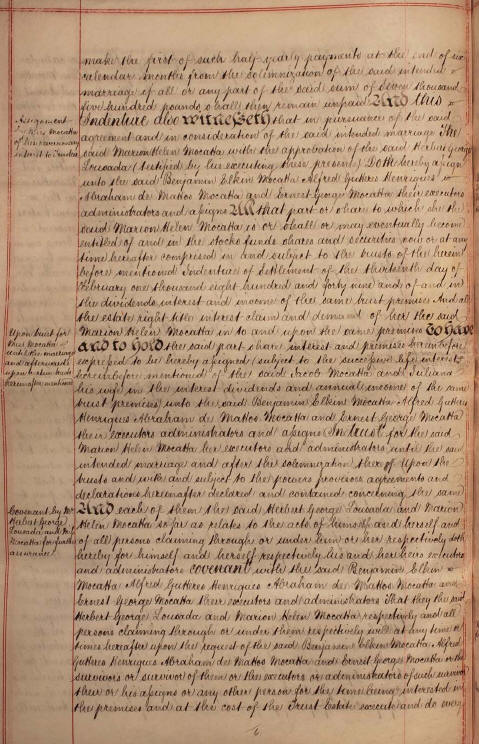 make the first of such half yearly payments at the end of six
calendar months from the solemnization of the said intended
marriage if all or any part of the said sum of seven thousand
five hundred pounds shall then remain unpaid And this
Indenture also witnesseth that in pursuance of the said
agreement and in consideration of the said intended marriage The
said Marion Helen Mocatta with the approbation of the said Herbert George
Lousada (testified by his executing these presents) Doth hereby assign
unto the said Benjamin Elkin Mocatta Alfred Gutteres Henriques
Abraham de Mattos Mocatta and Ernest George Mocatta their executors
administrators and assigns All that part or share to which she the
said Marion Helen Mocatta is or shall or may eventually become
entitled of and in the stocks funds shares and securities now or at any
time hereafter comprised in and subject to the trusts of the herein
before mentioned Indenture of Settlement of the thirteenth day of
February one thousand eight hundred and forty nine and of and in
the dividends interest and income of the same trust premises And all
the estate right title interest claim and demand of her the said
Marion Helen Mocatta in to and upon the same premises To have
and to hold the said part share interest and premises hereinbefore
expressed to be hereby assigned (subject to the successive life interests
hereinbefore mentioned of the said Jacob Mocatta and Juliana
his wife in the interest dividends and annual income of the same
trust premises unto the said Benjamin Elkin Mocatta Alfred Gutteres
Henriques Abraham de Mattos Mocatta and Ernest George Mocatta
their executors administrators and assigns In trust for the said
Marion Helen Mocatta her executors and administrators until the said
intended marriage and after the solemnization thereof Upon the
trusts and with and subject to the powers provisoes agreements and
declarations hereinafter declared and contained concerning the same
And each of them the said Herbert George Lousada and Marion
Helen Mocatta so far as relates to the acts of himself and herself and
of all persons claiming through or under him or her respectively doth
hereby for himself and herself respectively his and her heirs executors
and administrators covenant with the said Benjamin Elkin
Mocatta Alfred Gutteres Henriques Abraham de Mattos Mocatta and
Ernest George Mocatta their executors and administrators That they the said
Herbert George Lousada and Marion Helen Mocatta respectively and all
persons claiming through or under them respectively will at any time or
times hereafter upon the request of the said Benjamin Elkin Mocatta Alfred
Gutteres Henriques Abraham de Mattos Mocatta and Ernest George Mocatta or the
survivors or survivor of them or the executors or administrators of such survivor
their or his assigns or any other person for the time being interested in
the premises and at the cost of the Trust Estate execute and do every
6
Assignment
by Miss Mocatta
of her reversionary
interest to Trustees
Upon trust for
Miss Mocatta
until the marriage
and afterwards
upon trusts
hereinafter mentioned
Covenant by Mr
Herbert George
Lousada and Miss
Mocatta for further
assurance